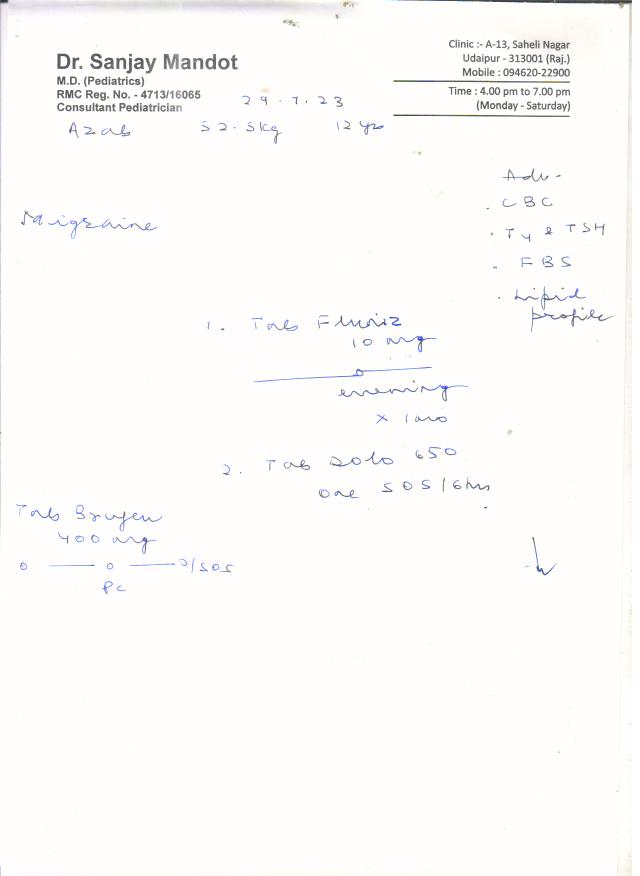 Dr. Sanjay Mandot
M.D. (Pediatrics)
RMC Reg. No. - 4713/16065
Consultant Pediatrician
Clinic :- A-13, Saheli Nagar
Udaipur - 313001 (Raj.)
Mobile : 094620-22900
Time : 4.00 pm to 7.00 pm
(Monday - Saturday)
29.7.23
52.5kg 12 yrs
Migraine
Adv -
. CBC
. T4 & TSH
. FBS
. Lipid
profile
1. Tab
10 mg
o
evening
x 1
2. Tab Dolo 650
one SOS/6hrs
Tab Brufen
400 mg
o — o — o/SOS
Pc